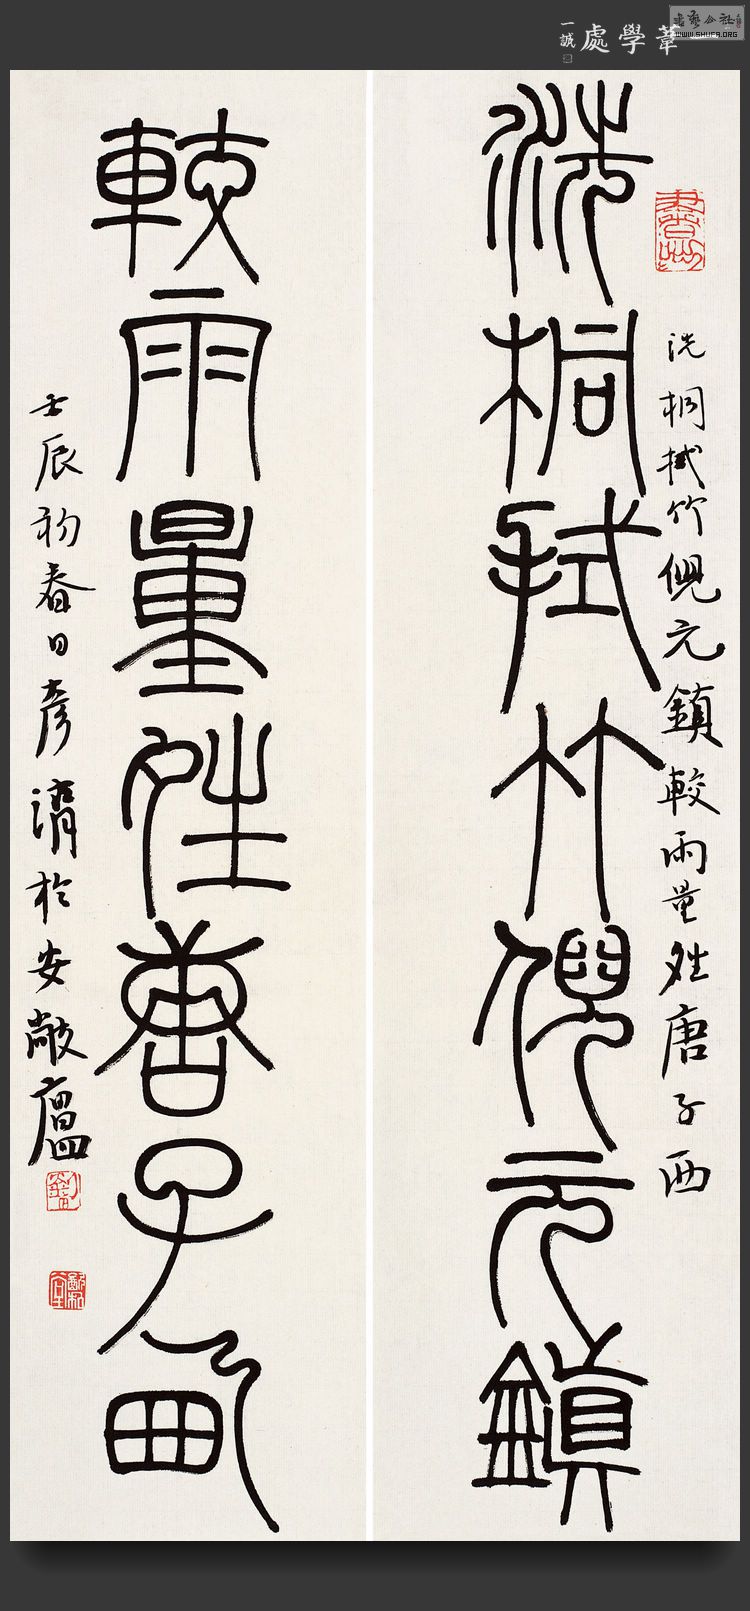 一葦學處
一誠
WWW.SHUFA.ORG
洗桐拭竹倪元鎮
洗桐拭竹倪元鎮較雨量晴唐子西
較雨量晴唐子西
壬辰初春日彥湖於安敞廬